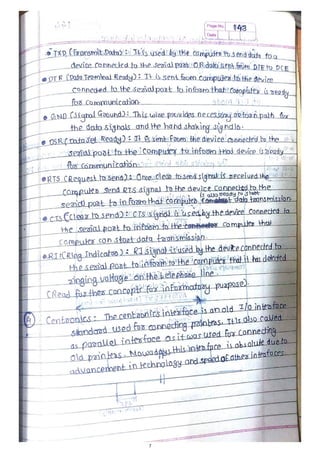 Page No. 143
Date
• TXD (Transmit Data) : It is used by the computer to send data to a
device connected to the serial port. OR data sent from DTE to DCE
• DTR (Data Terminal Ready) : It is sent from computer to the device
connected to the serial port to inform that computer is ready
for communication.
• GND (Signal Ground) : This wire provides necessary return path for
the data signals and the hand shaking signals.
• DSR (Data Set Ready) : It is sent from the device connected to the
serial port to the computer to inform that device is ready
for communication.
• RTS (Request to Send) : Once clear to send signal is received the
computer send RTS signal to the device connected to the
serial port to inform that computer is also ready to start data transmission.
• CTS (Clear to Send) : CTS signal is used by the device connected to
the serial port to inform to the computer that
computer can start data transmission.
• RI (Ring Indicator) : RI signal is used by the device connected to
the serial port to inform to the computer that it has detected
ringing voltage on the telephone line.
(Read further concepts for informatory purpose).
④ Centronics : The centronics interface is an old I/O interface
standard used for connecting printers. It is also called
as parallel interface as it was used for connecting
old printers. Nowadays this interface is absolute due to
advancement in technology and speed of other interfaces.
1